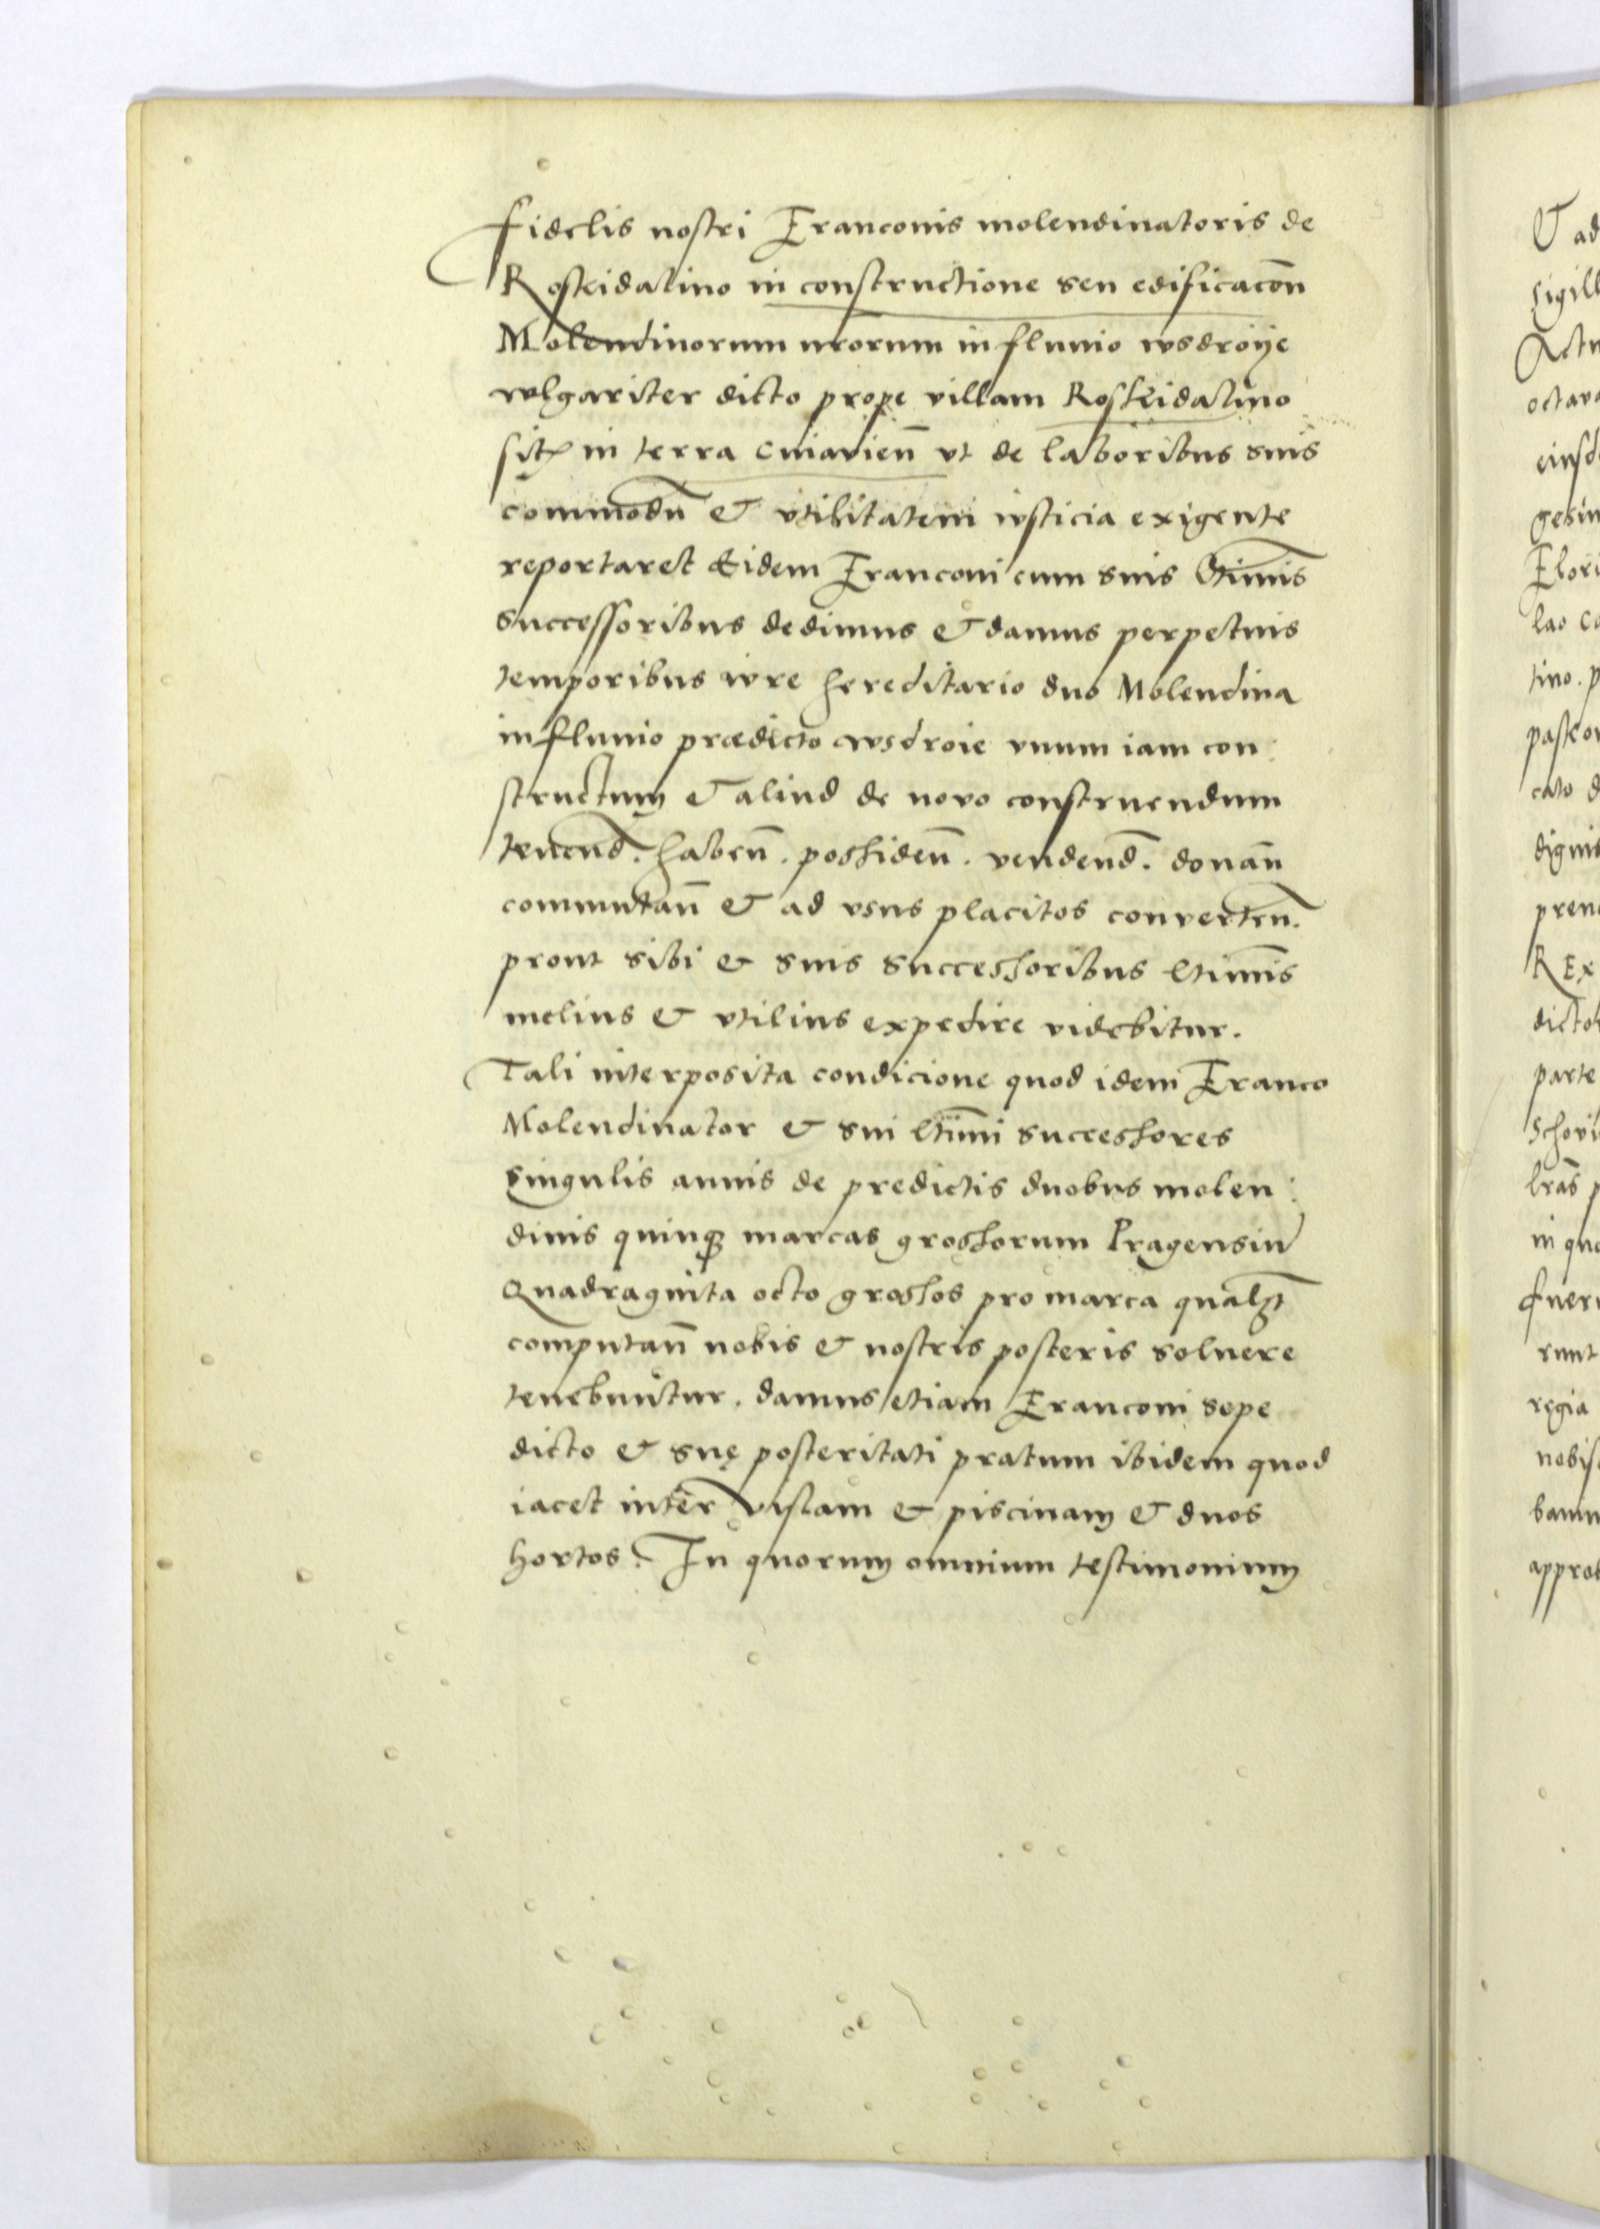 fidelis nostri Franconis molendinatoris de
Rostkidalino in constructione seu edificacōn
Molendinorum nrōrum in fluuio wsdroije
vulgariter dicto prope villam Rostkidalino
sit in terra Cuiavieñ vt de laboribus suis
commodū & vtilitatem iusticia exigente
reportaret Eidem Franconi cum suis ltimis
successoribus dedimus & damus perpetuis
temporibus iure hereditario duo Molendina
in fluuio prædicto wsdroie vnum iam con:
structum & aliud de novo construendum
tenend. habeñ. possideñ. vendend. donañ
commutañ & ad vsus placitos converteñ.
prout sibi & suis successoribus ltimis
melius & vtilius expedire videbitur.
Tali interposita condicione quod idem Franco
Molendinator & sui ltimi successores
singulis annis de predictis duobus molen:
dinis quinq marcas grossorum Pragensiū
Quadraginta octo grossos pro marca qualt
computañ nobis & nostris posteris soluere
tenebuntur. damus etiam Franconi sepe
dicto & suę posteritati pratum ibidem quod
iacet inter vislam & piscinam & duos
hortos. In quorum omnium testimonium
T ad
sigill
Actu
octava
eiusd
gesim
Flori
lao Ca
tino. p
pastor
cato d
dignis
pren
REx
dictor
parte
Schovi
lrās p
in quo
fuer
runt
regia
nobis
bam
approb